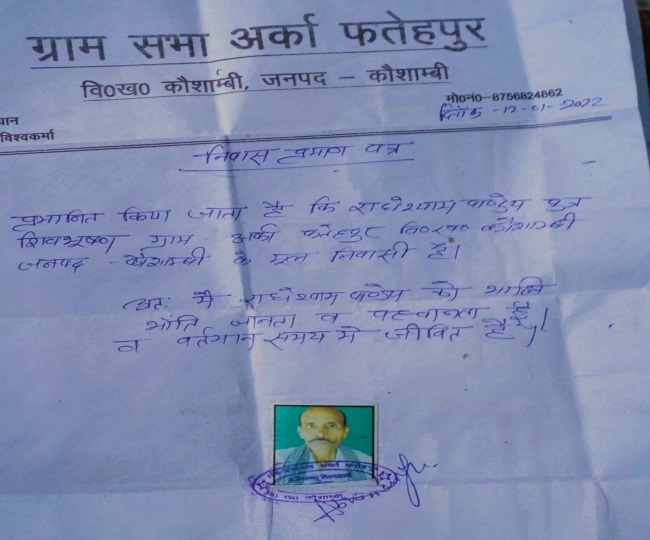 ग्राम सभा अर्का फतेहपुर
वि0ख0 कौशाम्बी, जनपद - कौशाम्बी
मो0नं0-8756824862
दिनाँक -12-01-2022
धान
विश्वकर्मा
निवास प्रमाण पत्र
प्रमाणित किया जाता है कि राधेश्याम पाण्डेय पुत्र
शिवभूषण ग्राम - अर्का फतेहपुर वि0ख0 कौशाम्बी
जनपद - कौशाम्बी के मूल निवासी है।
अतः मै राधेश्याम पाण्डेय को भालि
भाँति जानता व पहचानता है
व वर्तमान समय मे जीवित है।
ख0 कौशाम्बी